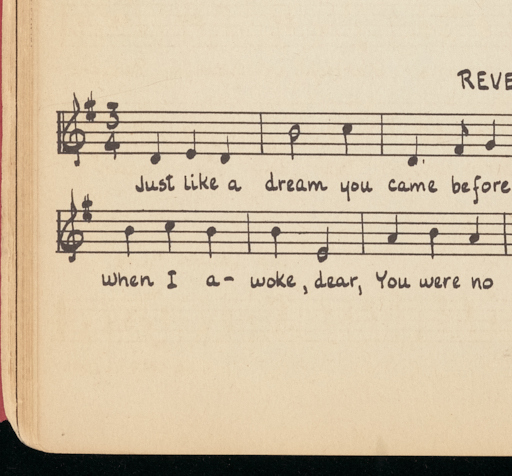 REVE
3/4
Just like a dream you came before
when I a- woke, dear, You were no